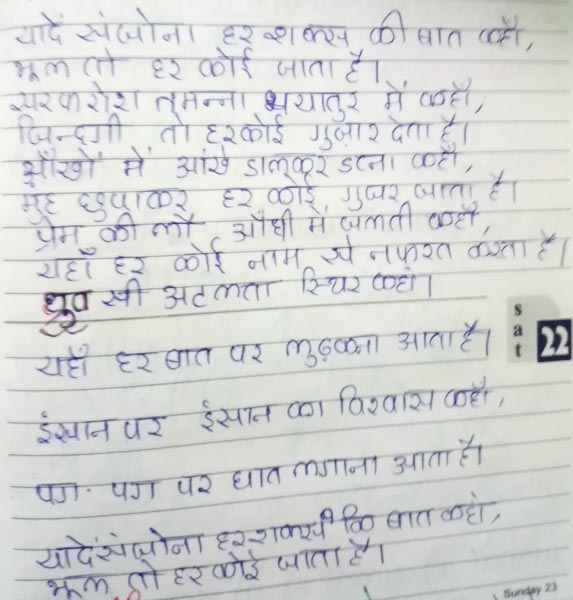 यादें संजोना हर शक्स की बात कहाँ,
भूल तो हर कोई जाता है।
सरफरोश तमन्ना भयातुर में कहाँ,
जिन्दगी तो हरकोई गुजार देता है।
आँखों में आंखे डालकर डटना कहाँ,
मुह छुपाकर हर कोई गुजर जाता है।
प्रेम की लौ आँधी में जलती कहाँ,
यहाँ हर कोई नाम से नफरत करता है।
ध्रुव सी अटलता स्थिर कहाँ।
sat 22
यहाँ हर बात पर लुढ़कना आता है।
इंसान पर इंसान का विश्वास कहाँ,
पग-पग पर घात लगाना आता है।
यादेंसंजोना हरशक्सकी कि बात कहां,
भूल तो हरकोई जाता है।
Sunday 23